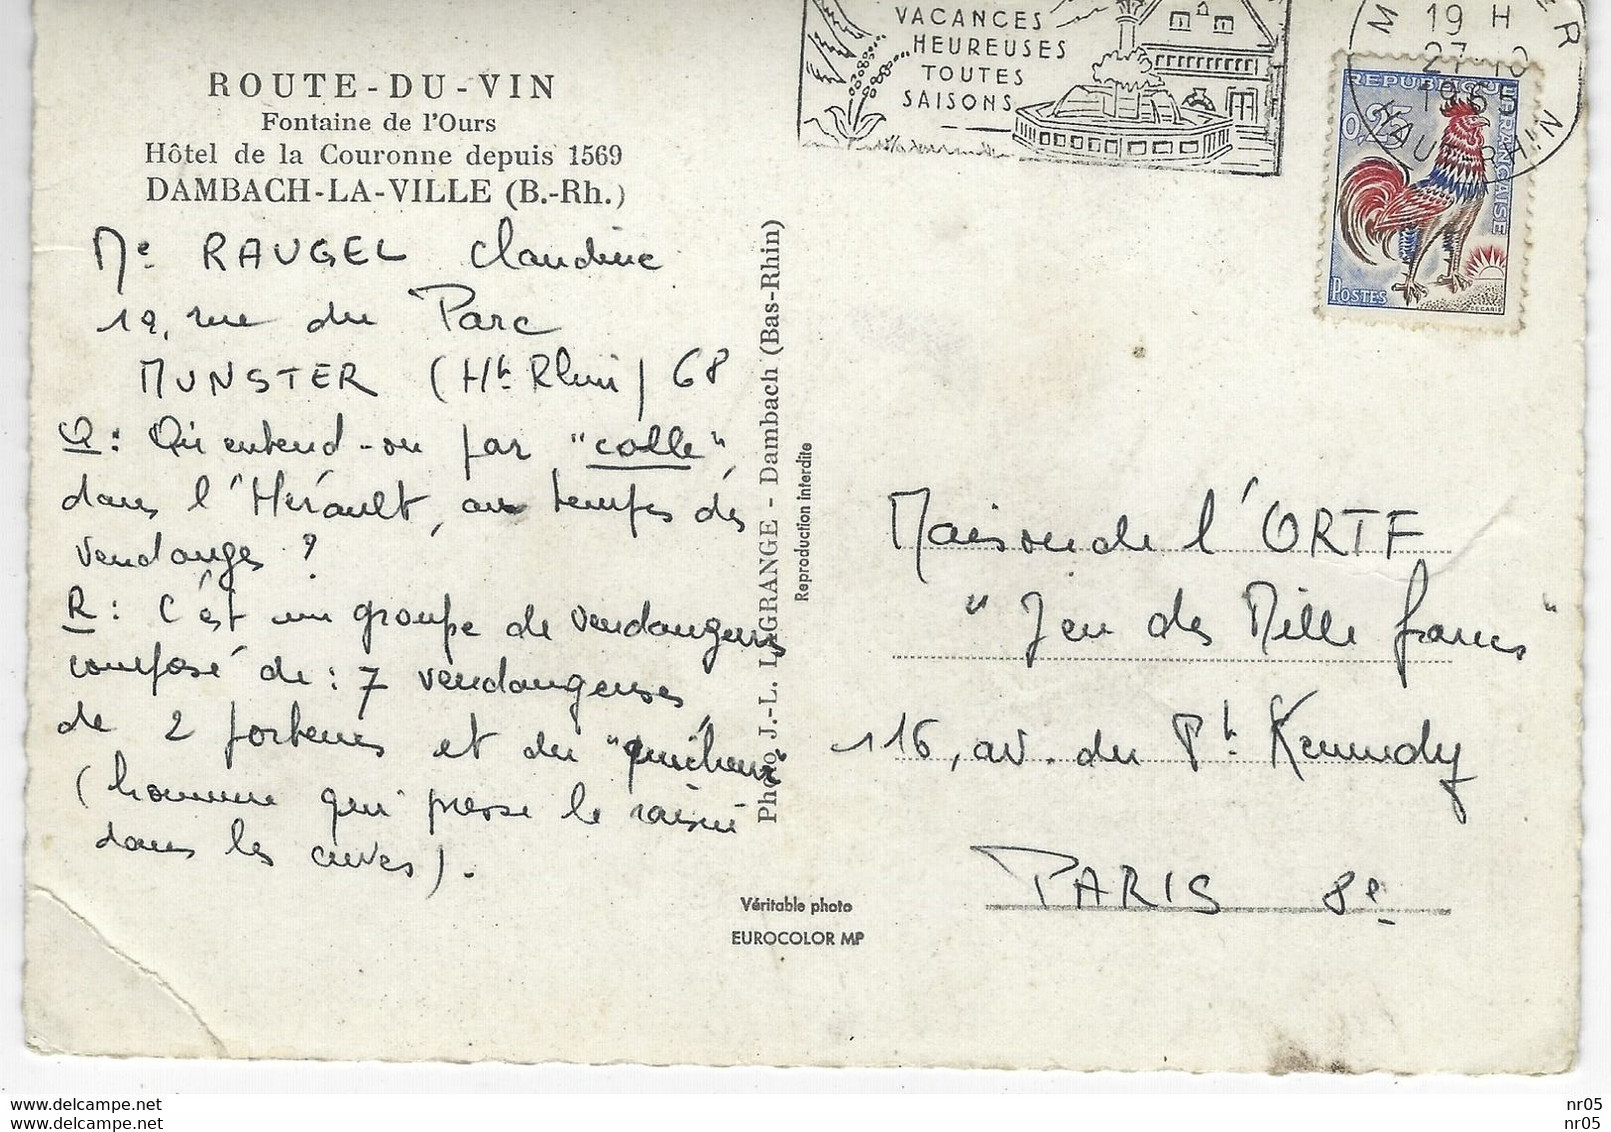 ROUTE-DU-VIN
Fontaine de l'Ours
Hôtel de la Couronne depuis 1569
DAMBACH-LA-VILLE (B.-Rh.)
Me RAUGEL Claudine
12, rue du Parc
MUNSTER (Ht Rhin) 68
Q : Qu'entend-on par "colle",
dans l'Hérault, au temps des
vendanges ?
R : C'est un groupe de vendangeurs
composé de : 7 vendangeuses,
de 2 porteurs et du "quicheur"
(homme qui presse le raisin
dans les cuves).
Photo J.-L. LAGRANGE - Dambach (Bas-Rhin)
Reproduction interdite
Véritable photo
EUROCOLOR MP
VACANCES
HEUREUSES
TOUTES
SAISONS
19 H
27-10
1965
HAUT-RHIN
REPUBLIQUE FRANÇAISE
0,25
POSTES
DECARIS
Maison de l'ORTF
"Jeu des Mille francs"
116, av. du Pt Kennedy
PARIS 8e
www.delcampe.net
www.delcampe.net
nr05
nr05